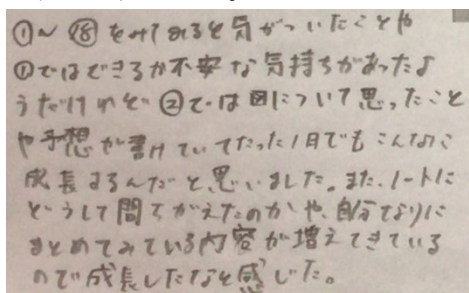 ①～⑱をみてみると気がついたことや
①ではできるか不安な気持ちがあったよ
うだけれど②では図について思ったこと
や予想が書けていてたった1日でもこんなに
成長するんだと思いました。また、ノートに
どうして間ちがえたのかや、自分なりに
まとめてみている内容が増えてきている
ので成長したなと感じた。